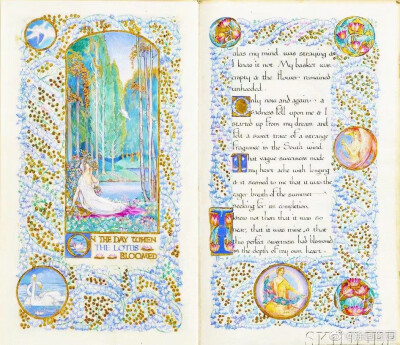 ON THE DAY WHEN
THE LOTUS
BLOOMED
alas my mind was straying &
I knew it not. My basket was
empty & the flower remained
unheeded.
Only now and again a
sadness fell upon me & I
started up from my dream and
felt a sweet trace of a strange
fragrance in the South wind.
That vague sweetness made
my heart ache with longing
& it seemed to me that it was the
eager breath of the summer
seeking for its completion.
I knew not then that it was so
near, that it was mine, & that
this perfect sweetness had blossomed
in the depth of my own heart.